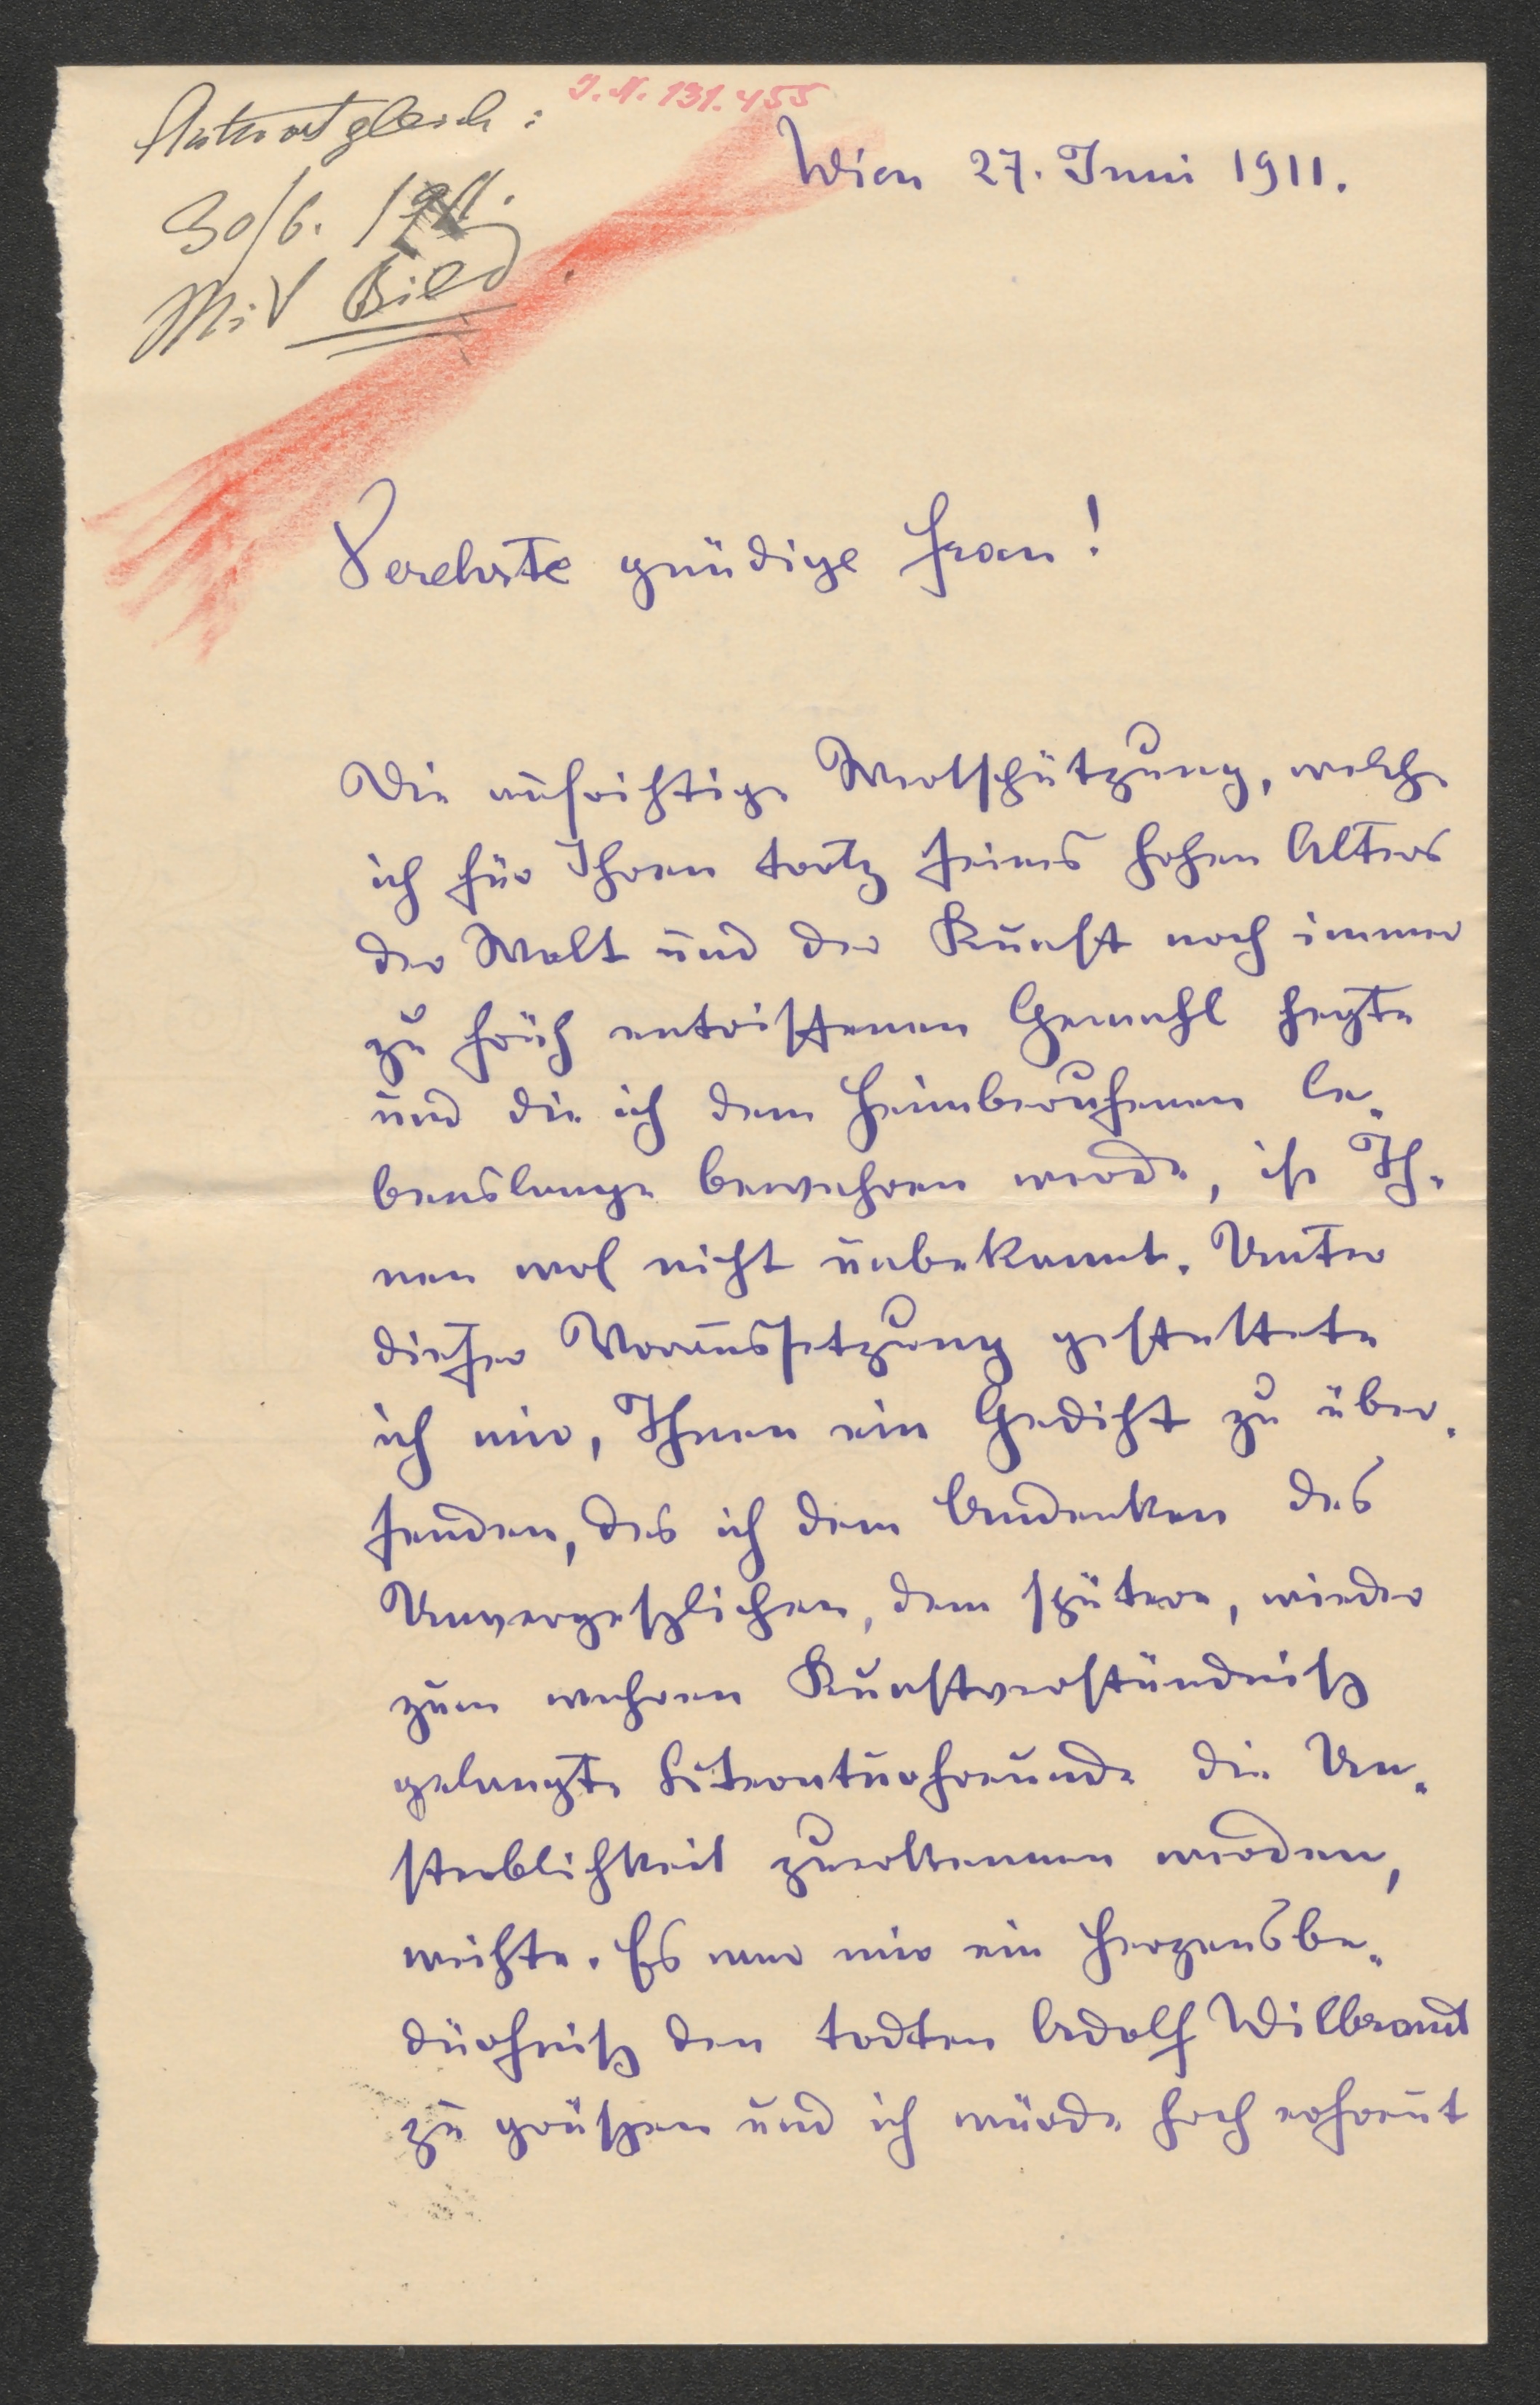 Antwortgleich:
J.N. 131.455
30/6. 1911.
Mit Bild.
Wien 27. Juni 1911.
Verehrte gnädige Frau!
Die aufrichtige Wertschätzung, welche
ich für Ihren trotz seines hohen Alters
der Welt und der Kunst noch immer
zu früh entrissenen Gemahl hegte
und die ich dem Heimberufenen le-
benslange bewahren werde, ist Ih-
nen wol nicht unbekannt. Unter
dieser Voraussetzung gestattete
ich mir, Ihnen ein Gedicht zu über-
senden, das ich dem Andenken des
Unvergeßlichen, dem spätere, wieder
zum wahren Kunstverständniß
gelangte Literaturfreunde die Un-
sterblichkeit zuerkennen werden,
weihte. Es war mir ein Herzensbe-
dürfniß den todten Adolf Wilbrandt
zu grüßen und ich würde hoch erfreut